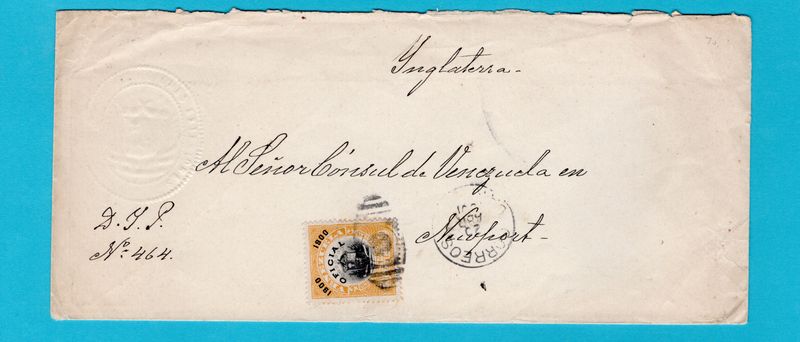 Inglaterra.
Al Señor Cónsul de Venezuela en
Newport.
D. I. P.
Nº 464.
1900
OFICIAL
1900
CORREOS